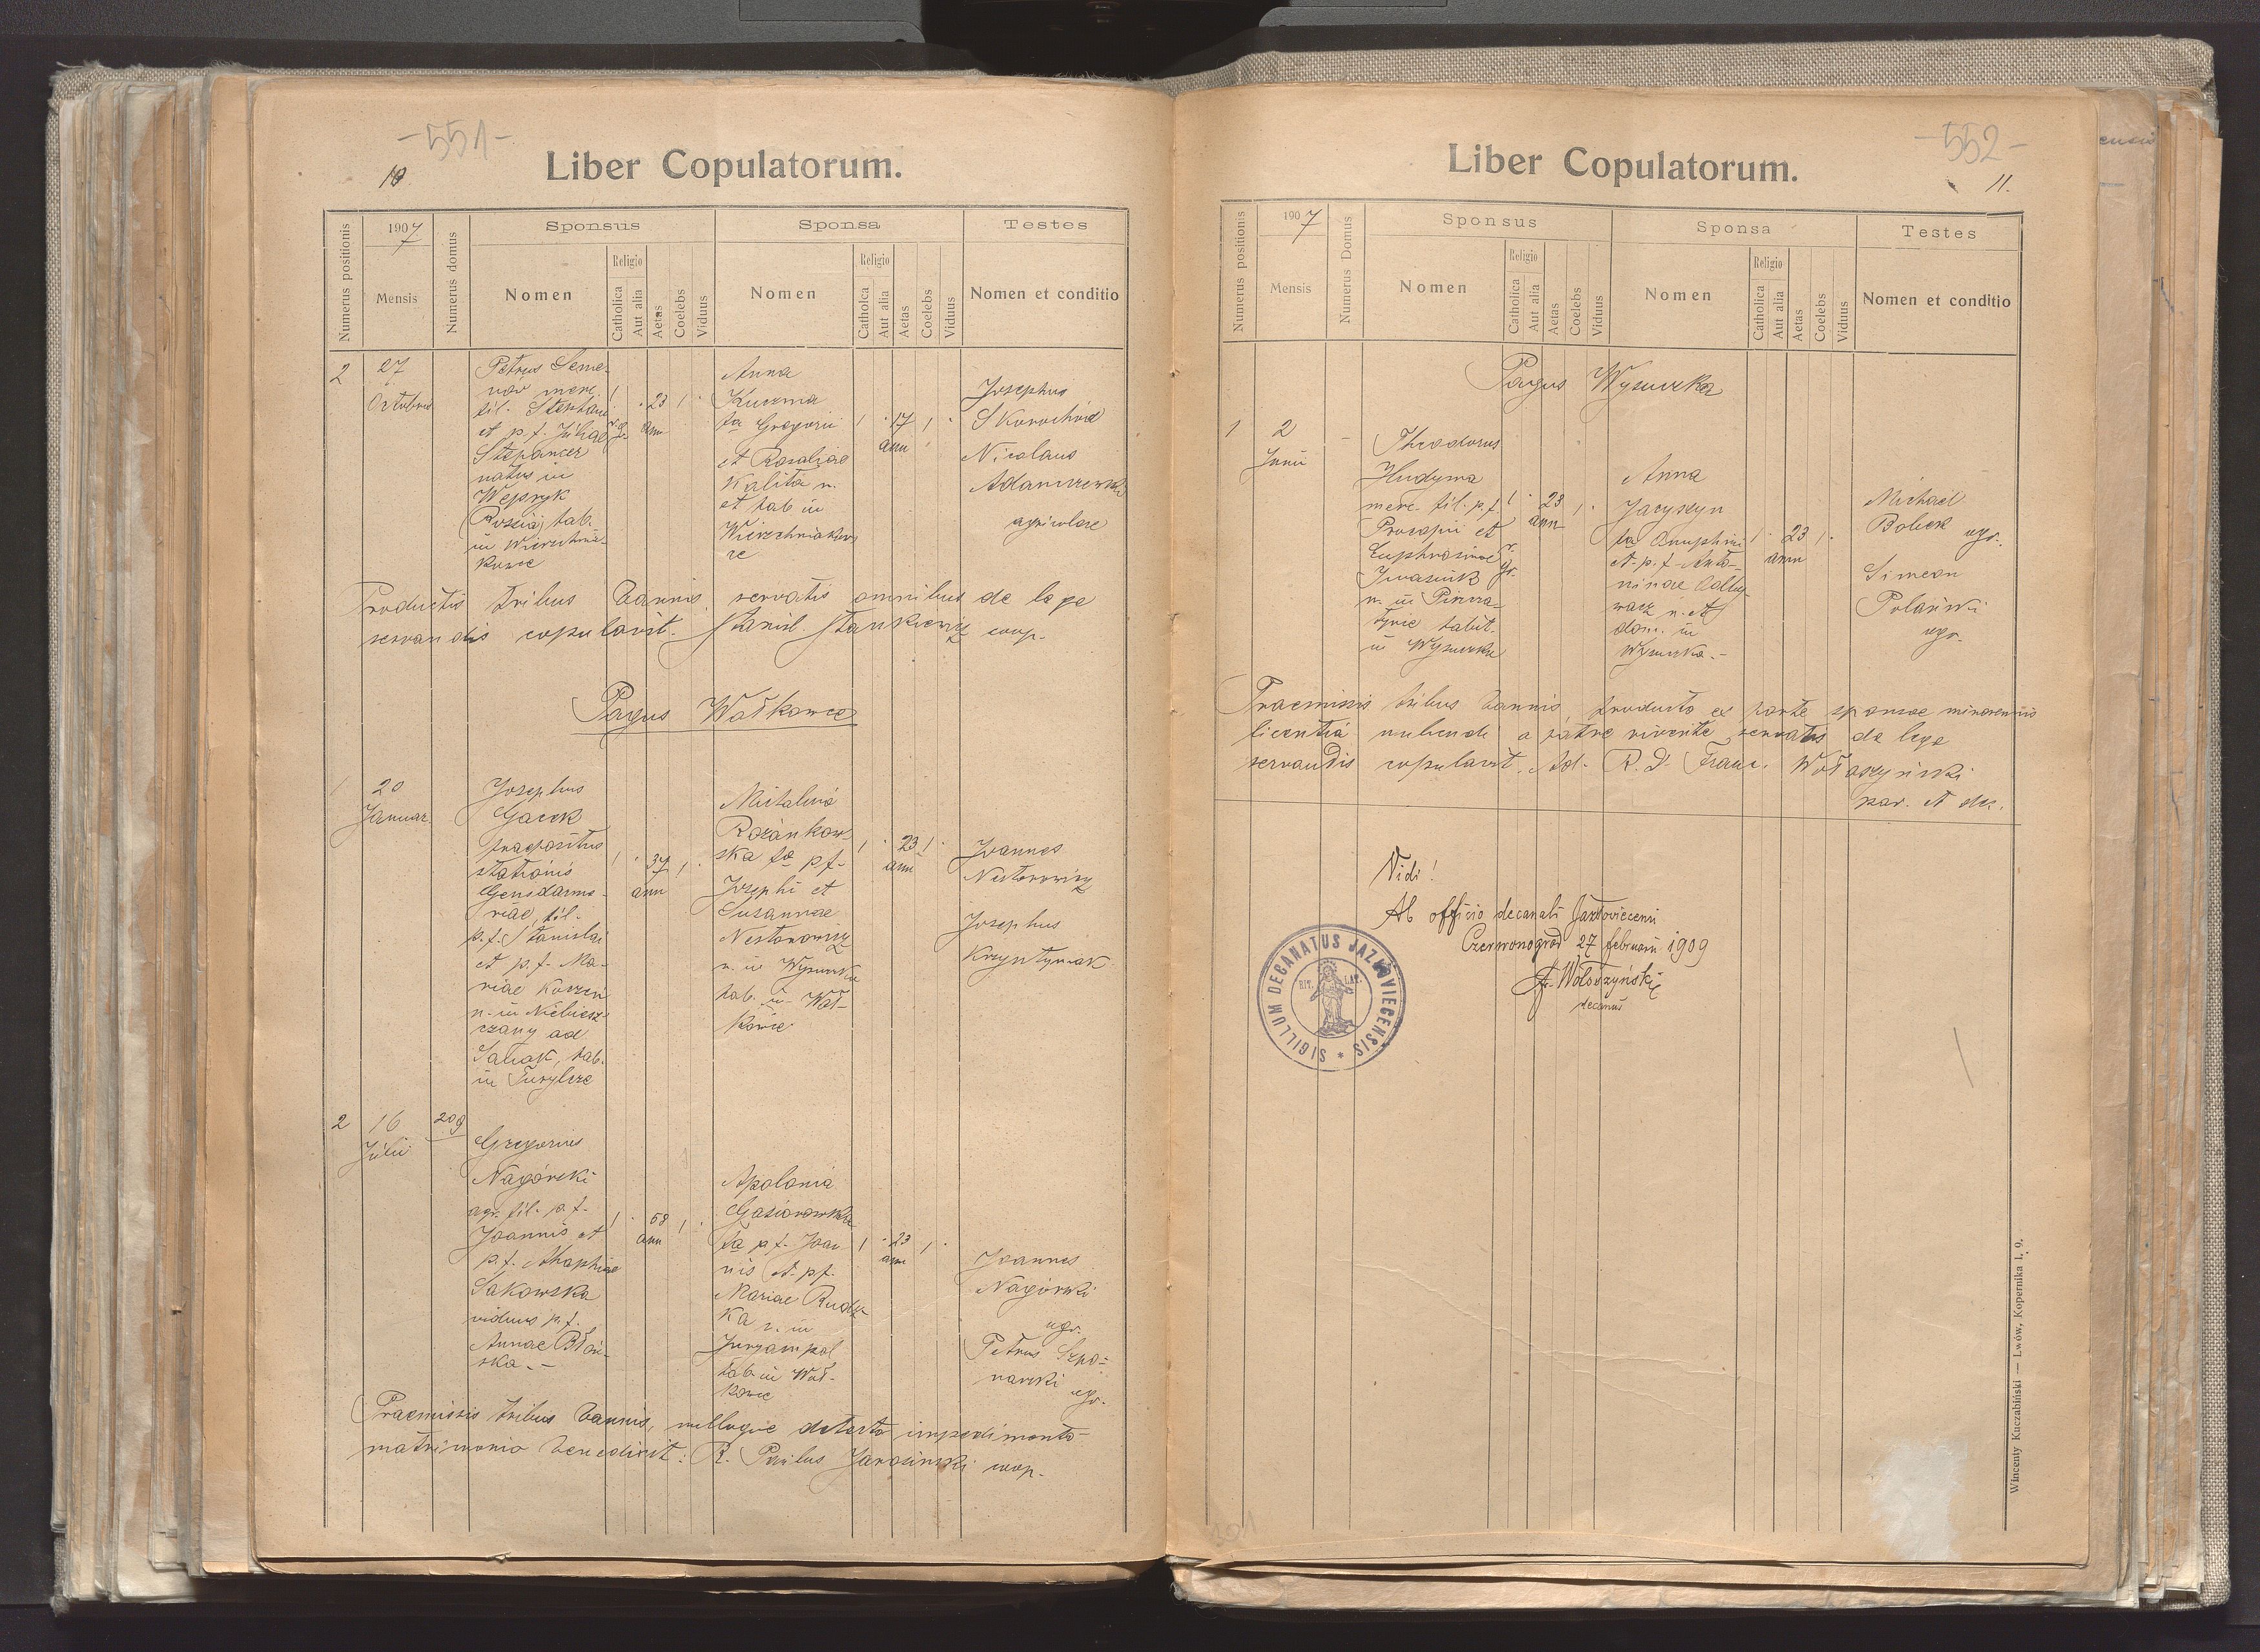 -551-
10.
Liber Copulatorum.
Numerus positionis
1907
Mensis
Numerus domus
Sponsus
Nomen
Religio
Catholica
Aut alia
Aetas
Coelebs
Viduus
Sponsa
Nomen
Religio
Catholca
Aut alia
Aetas
Coelebs
Viduus
Testes
Nomen et conditio
2
27
Octobris
Petrus Seme-
nów merc
fil. Stephani
et p. f. Juliae
Stepancer
natus in
Wepryk
(Rosia) hab.
in Wierzchnia-
kowce
1
r. gr.
23
ann
1
Anna
Kuczma
fa Gregorii
et Rosaliae
Kalita n.
et hab in
Wierzchniakow
ce
1
17
ann
1
Josephus
Skorochid
Nicolaus
Adamczewski
agricolae
Productis tribus bannis servatis omnibus de lege
servandis copulavit. Stanisl Stankiewicz coop.
Pagus Wołkowce
1
20
Januar.
Josephus
Gacek
praepositus
stationis
Gensdarme-
riae, fil.
p. f. Stanislai
et p. f. Ma-
riae Korzeń
n. in Niebiesz-
czany ad
Sanok, hab.
in Turylcze
1
37
ann
1
Michalina
Rozankow-
ska fa p f.
Josephi et
Susannae
Nestorowicz
n. in Wysuczka
hab. in Woł-
kowce
1
23
ann
1
Joannes
Nestorowicz
Josephus
Krzyntymak
2
16
Julii
209
Gregorius
Nagórski
agr. fil. p f.
Joannis et
p. f. Ahaphiae
Sakowska
viduus p f.
Annae Błoń-
ska. -
1
58
ann
1
Apolonia
Gasiorowska
fa p f. Joan
nis et p f.
Mariae Rudz-
ka n. in
Jurjampol
hab in Woł-
kowce
1
23
ann
1
Joannes
Nagórski
agr.
Petrus Szpo-
narski
agr.
Praemissis tribus bannis, nulloque detecto impedimento
matrimonio benedixit: R. Paulus Jarosinski coop.
-552-
11.
Liber Copulatorum.
Numerus positionis
1907
Mensis
Numerus Domus
Sponsus
Nomen
Religio
Catholica
Aut alia
Aetas
Coelebs
Viduus
Sponsa
Nomen
Religio
Catholica
Aut alia
Aetas
Coelebs
Viduus
Testes
Nomen et conditio
Pagus Wysuczka
1
2
Junii
-
Theodorus
Hudyma
merc. fil. p. f.
Procopii et
Euphrosinae
Iwasiuk
n. in Piszcza-
tyńce habit.
in Wysuczka
1
r. gr.
28
ann
1
Anna
Jacyszyn
fa Onuphrii
et p. f. Anto-
ninae
n. et
dom. in
Wysuczka. -
1
23
ann
1
Michael
Bobek
agr.
Simeon
Polański
agr.
Praemissis tribus bannis, producto ex parte sponsae minorennis
licentia nubendi a patre vivente servatis de lege
servandis copulavit. Ad. R. D. Franc. Wołoszyński
par. et dec.
Vidi!
Ab officio decanali Jazłoviecensi
Czerwonogród 27 februarii 1909
Fr. Wołoszyński
decanus
SIGILLUM DECANATUS JAZŁOVIECENSIS *
RIT. LAT.
301
Wincenty Kuczabiński — Lwów, Kopernika l. 9.